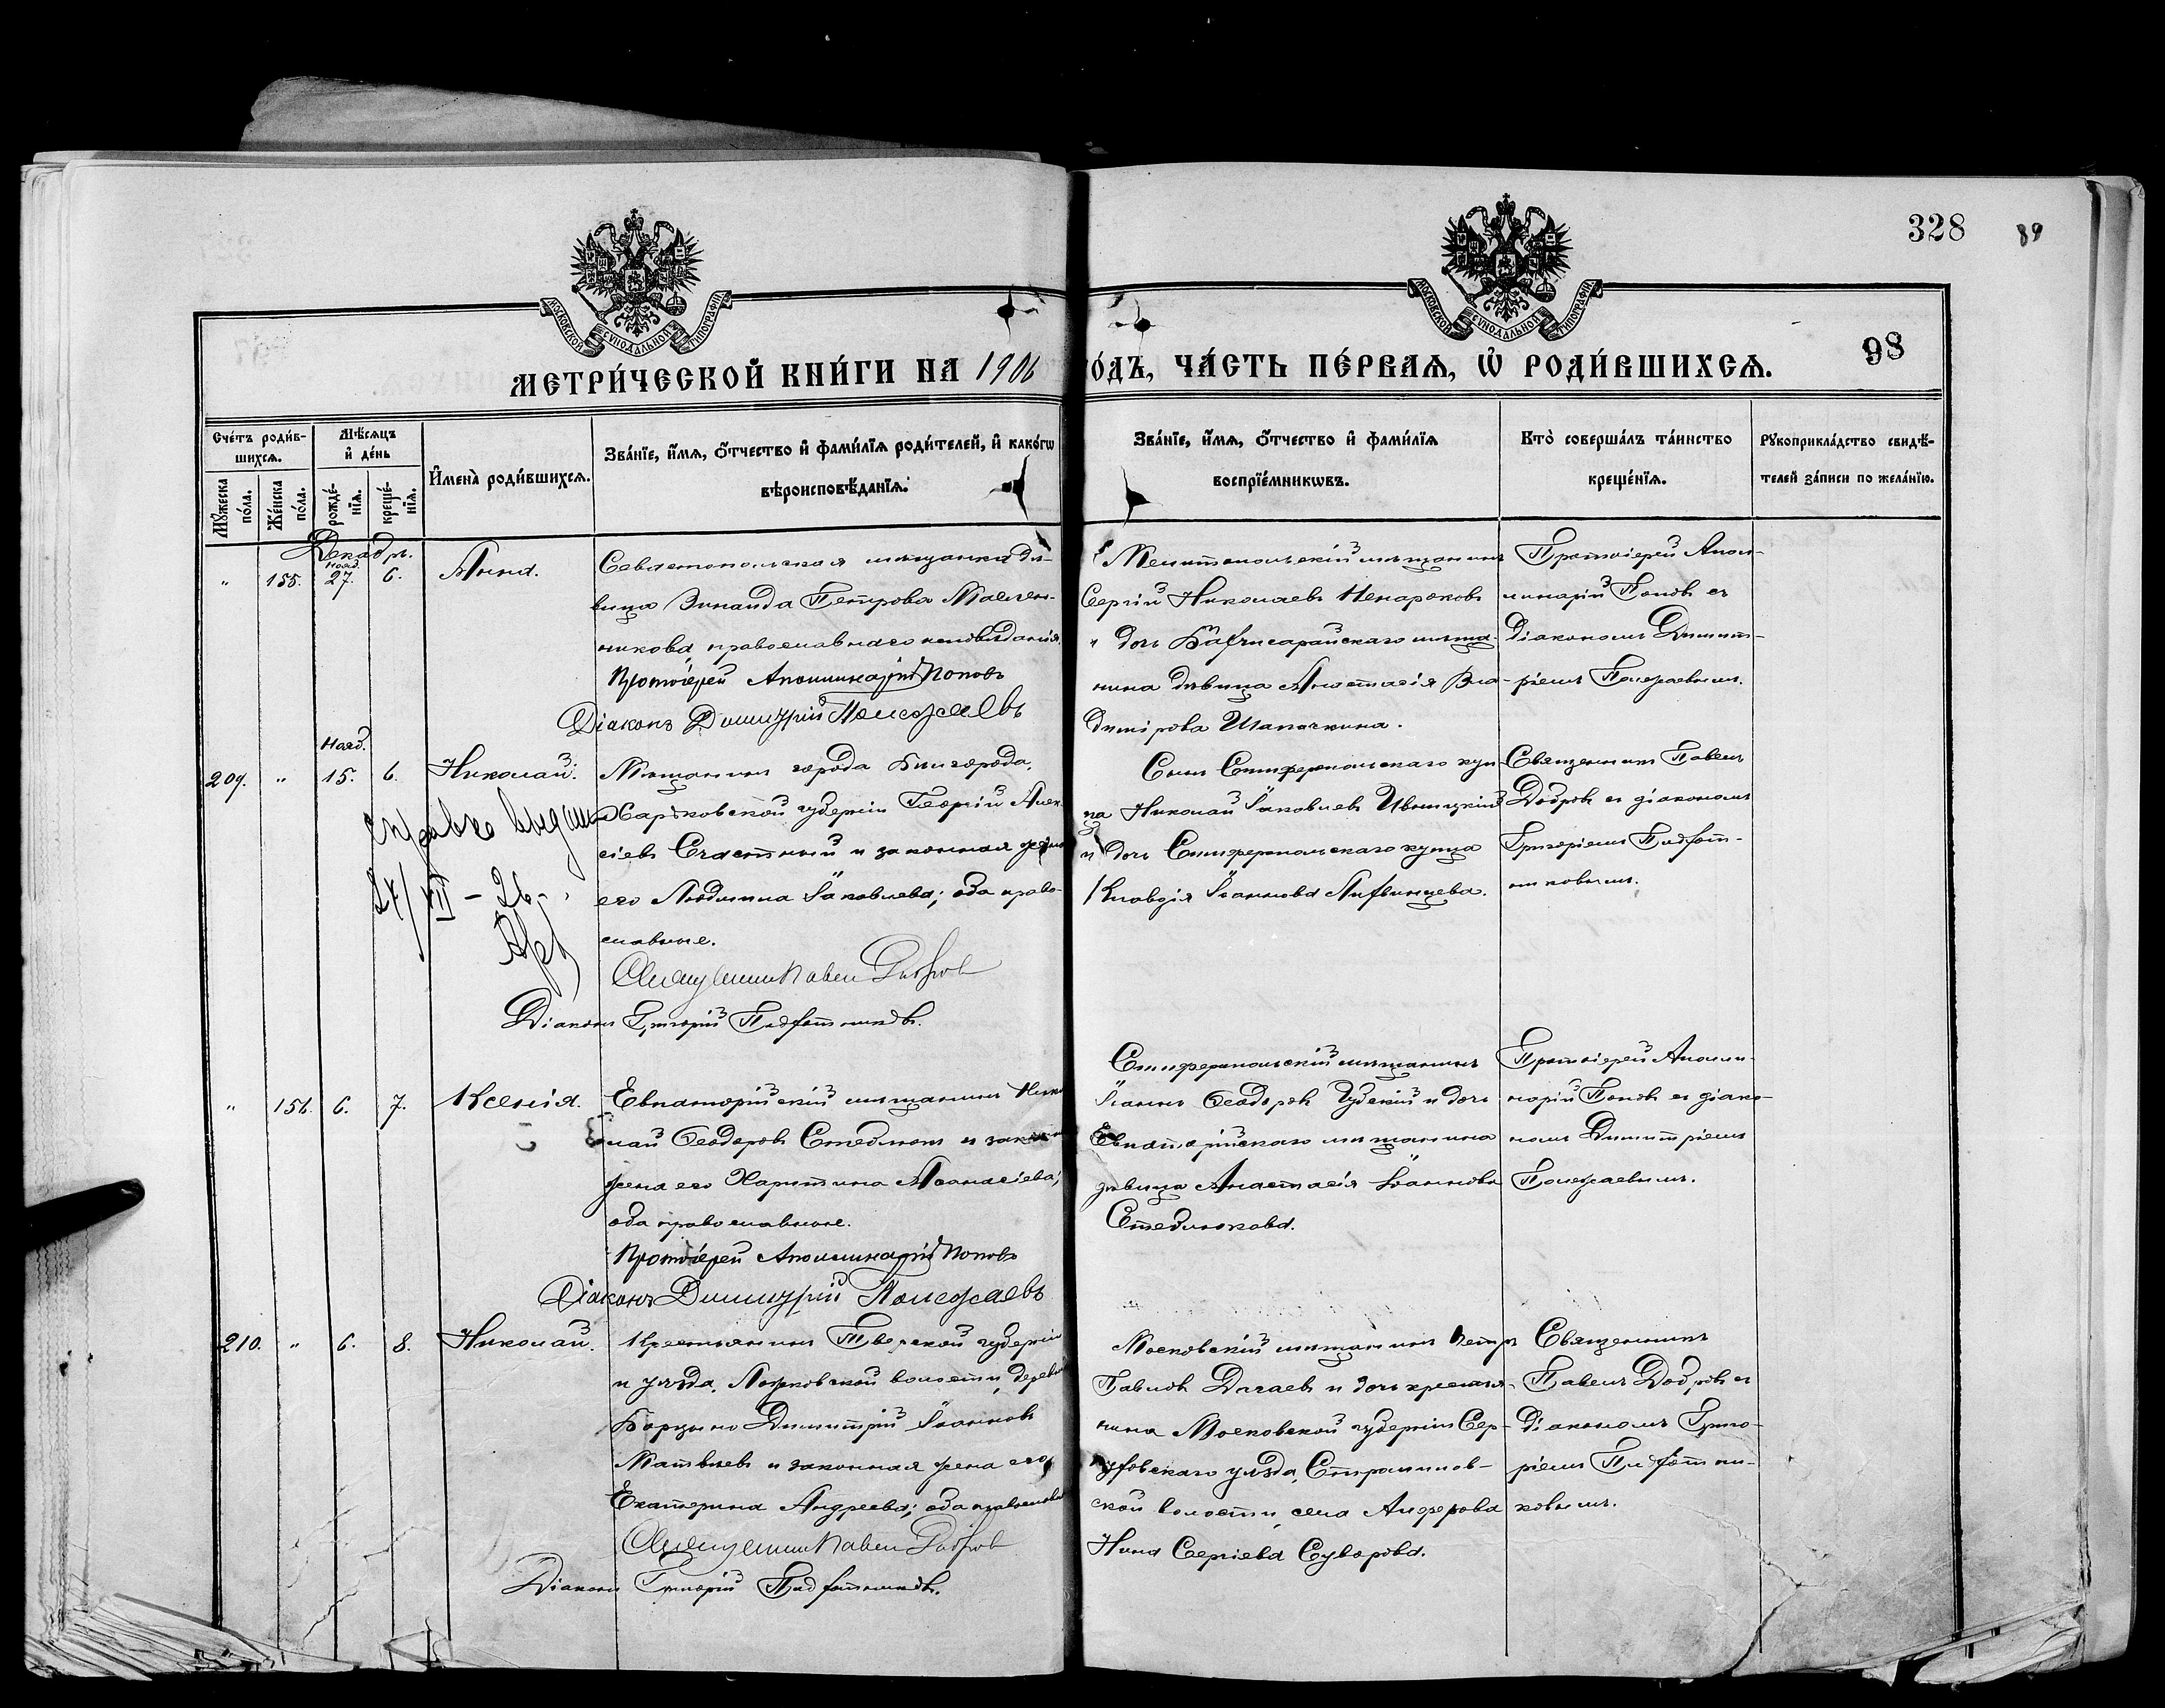 328
89
98
МОСКОВСКОЙ СѴНОДАЛЬНОЙ ТИПОГРАФІИ
МОСКОВСКОЙ СѴНОДАЛЬНОЙ ТИПОГРАФІИ
МЕТРИ́ЧЕСКОЙ КНИ́ГИ НА 1906
ГО́ДЪ, ЧА́СТЬ ПЕ́РВАѦ, Ѡ҆ РОДИ́ВШИХСѦ.
Сче́тъ роди́в-
шихсѧ.
Мꙋ́жеска по́ла.
Же́нска по́ла.
Мѣ́сѧцъ и҆ де́нь
рожде́-нїѧ.
креще́-нїѧ.
И҆мена̀ роди́вшихсѧ.
Зва́нїе, и҆́мѧ, ѻ҆́тчество и҆ фами́лїѧ роди́телей, и҆ како́гѡ
вѣроисповѣ́данїѧ.
Зва́нїе, и҆́мѧ, ѻ҆́тчество и҆ фами́лїѧ
воспрїе́мникѡвъ.
Кто̀ соверша́лъ та́инство
креще́нїѧ.
Рꙋкоприкла́дство свидѣ́-
телей за́писи по жела́нїю.
Декабрь.
нояб.
" 155. 27. 6. Анна.
Севастопольская мѣщанка дѣ-
вица Зинаида Петрова Маслен-
никова, православнаго исповѣданія.
Протоіерей Аполлинарій Поповъ
Діаконъ Димитрій Полежаевъ
Мелитопольскій мѣщанинъ
Сергій Николаевъ Ненароковъ
и дочь Бахчисарайскаго мѣща-
нина дѣвица Анастасія Вла-
димірова Шапочкина.
Протоіерей Апол-
линарій Поповъ съ
Діакономъ Димит-
ріемъ Полежаевымъ.
Нояб.
209. " 15. 6. Николай.
Мѣщанинъ города Бѣлгорода,
Харьковской губерніи Георгій Алек-
сіевъ Счастный и законная жена
его Людмила Іаковлева; оба право-
славные.
Священникъ Павелъ Добровъ
Діаконъ Григорій
справка выдана
VII - 26
Сынъ Симферопольскаго куп-
ца Николай Іаковлевъ Ивницкій
и дочь Симферопольскаго купца
Клавдія Іоаннова Литвинцева.
Священникъ Павелъ
Добровъ съ діакономъ
Григоріемъ
" 156. 6. 7. Ксенія.
Евпаторійскій мѣщанинъ Нико-
лай Ѳеодоровъ Стеблюкъ и законная
жена его Харитина Аѳанасіева;
оба православные.
Протоіерей Аполлинарій Поповъ
Діаконъ Димитрій Полежаевъ
Симферопольскій мѣщанинъ
Іоаннъ Ѳеодоровъ Чубскій и дочь
Евпаторійскаго мѣщанина
дѣвица Анастасія Іоаннова
Стеблюкова.
Протоіерей Аполли-
нарій Поповъ съ діако-
номъ Димитріемъ
Полежаевымъ.
210. " 6. 8. Николай.
Крестьянинъ Тверской губерніи
и уѣзда, волости, деревни
Димитрій Іоанновъ
Матвѣевъ и законная жена его
Екатерина Андреева; оба православные
Священникъ Павелъ Добровъ
Діаконъ Григорій
Московскій мѣщанинъ Петръ
Павловъ и дочь крестья-
нина Московской губерніи Сер-
пуховскаго уѣзда,
ской волости, села
Нина Сергіева Суворова.
Священникъ
Павелъ Добровъ съ
Діакономъ Григо-
ріемъ